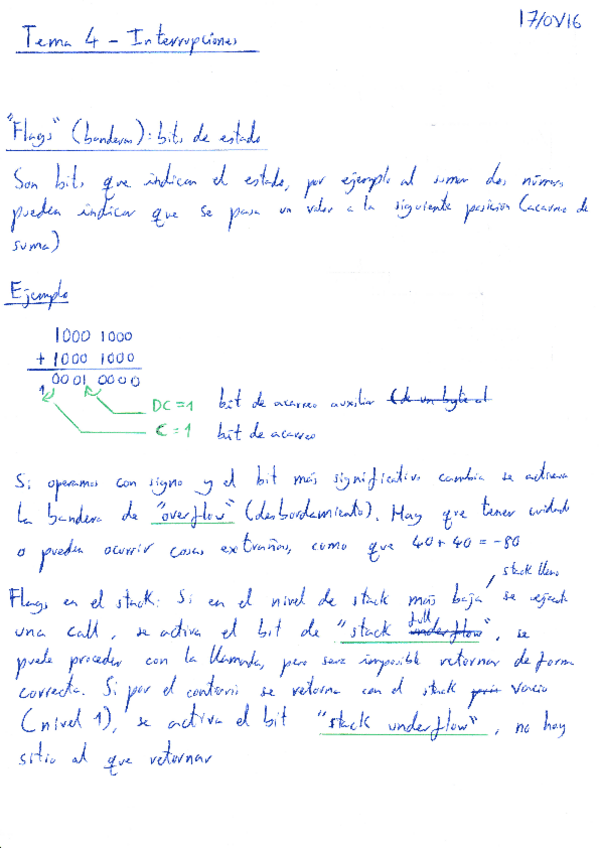 17/01/16
Tema 4 - Interrupciones
"Flags" (banderas): bits de estado
Son bits que indican el estado, por ejemplo al sumar dos números
pueden indicar que se pasa un valor a la siguiente posición (acarreo de
suma)
Ejemplo
1000 1000
+ 1000 1000
1 0001 0000
DC = 1 bit de acarreo auxiliar (de un byte al
C = 1 bit de acarreo
Si operamos con signo y el bit más significativo cambia se activa
la bandera de "overflow" (desbordamiento). Hay que tener cuidado
o pueden ocurrir cosas extrañas, como que 40 + 40 = -80
stack lleno
Flags en el stack: Si en el nivel de stack más baja se ejecuta
una call, se activa el bit de "stack full underflow", se
puede proceder con la llamada, pero será imposible retornar de forma
correcta. Si por el contrario se retorna con el stack vacío
(nivel 1), se activa el bit "stack underflow", no hay
sitio al que retornar